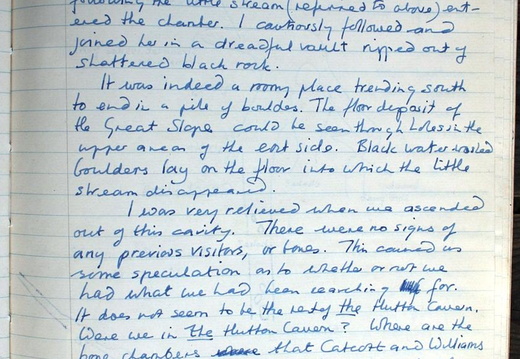 following the little stream (referred to above) ent-
ered the chamber. I cautiously followed and
joined her in a dreadful vault ripped out of
shattered black rock.
It was indeed a roomy place trending south
to end in a pile of boulders. The floor deposit of
the Great Slope could be seen through holes in the
upper areas of the east side. Black water washed
boulders lay on the floor into which the little
stream disappeared.
I was very relieved when we ascended
out of this cavity. There were no signs of
any previous visitors, or bones. This caused us
some speculation as to whether or not we
had what we had been searching for.
It does not seem to be the rest of the Hutton Cavern.
Were we in the Hutton Cavern? Where are the
bone chambers that Catcott and Williams